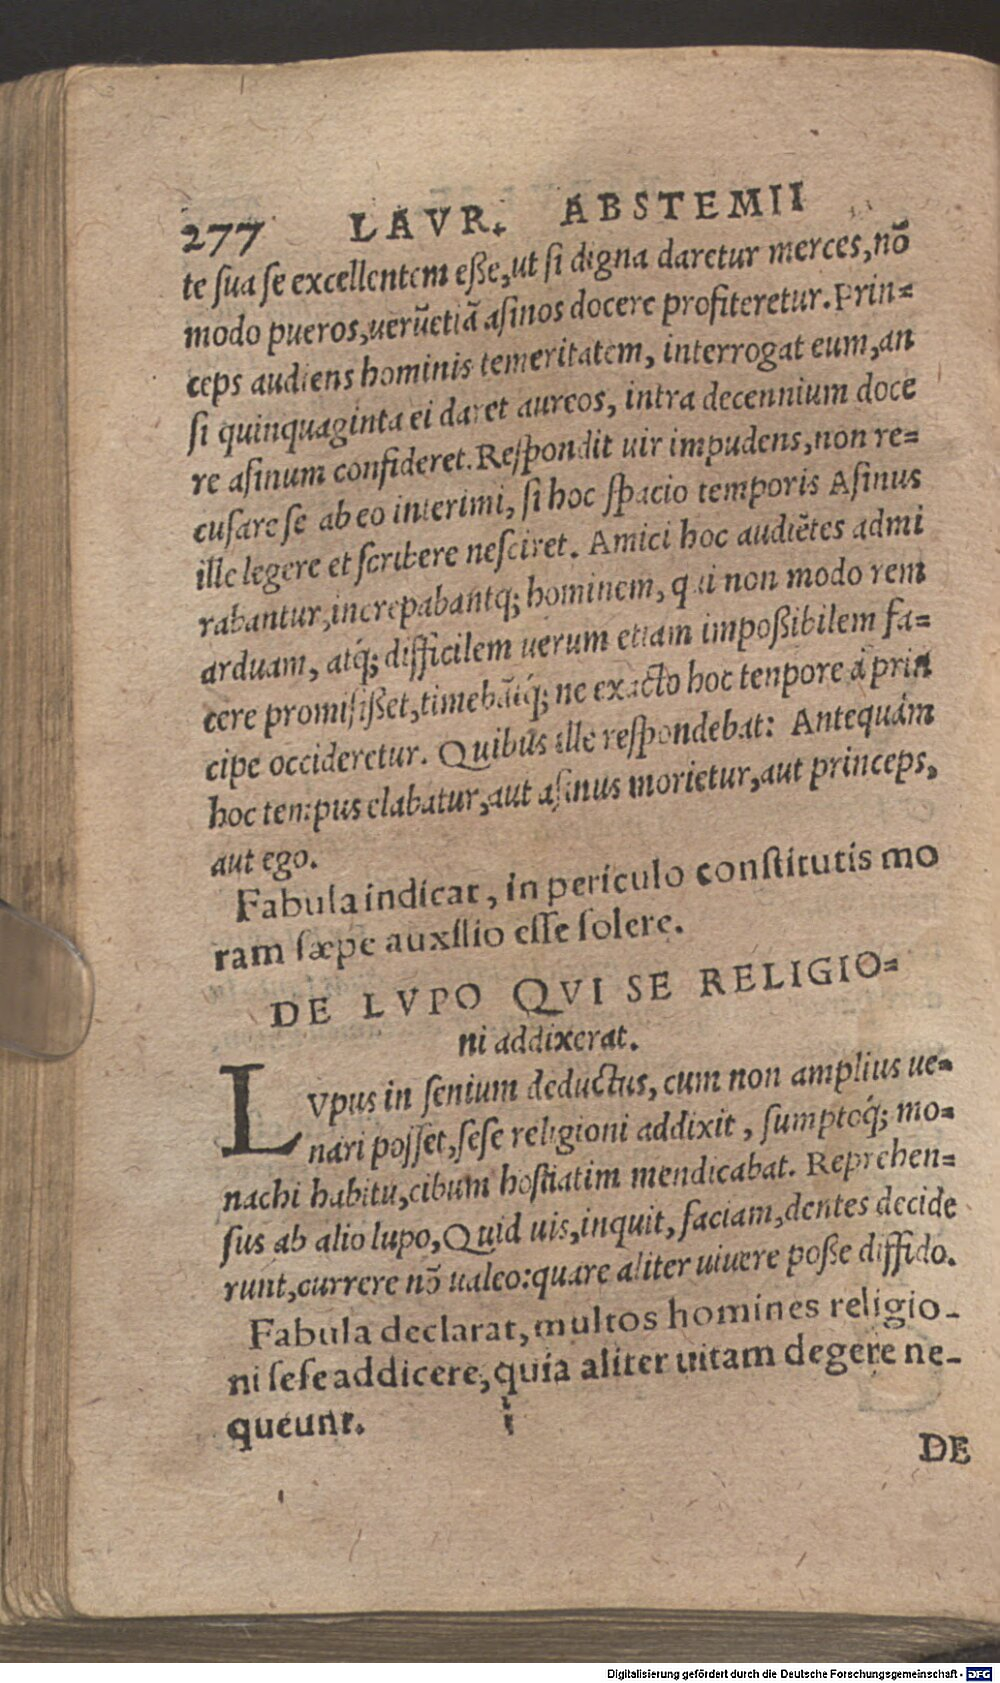 277 LAVR. ABSTEMII
te sua se excellentem eße, ut si digna daretur merces, nõ
modo pueros, uerũetiã asinos docere profiteretur. Prin=
ceps audiens hominis temeritatem, interrogat eum, an
si quinquaginta ei daret aureos, intra decennium doce
re asinum confideret. Respondit uir impudens, non re=
cusare se ab eo interimi, si hoc spacio temporis Asinus
ille legere et scribere nesciret. Amici hoc audiẽtes admi
rabantur, increpabantq; hominem, qui non modo rem
arduam, atq́; difficilem uerum etiam impoßibilem fa=
cere promisißet, timebãtq́; ne exacto hoc tenpore à prin
cipe occideretur. Quibus ille respondebat: Antequàm
hoc tempus elabatur, aut asinus morietur, aut princeps,
aut ego.
Fabula indicat, in periculo constitutis mo
ram sæpe auxilio esse solere.
DE LVPO QVI SE RELIGIO=
ni addixerat.
LVpus in senium deductus, cum non amplius ue=
nari posset, sese religioni addixit, sumptoq́; mo=
nachi habitu, cibum hostiatim mendicabat. Reprehen=
sus ab alio lupo, Quid uis, inquit, faciam, dentes decide
runt, currere nõ ualeo: quare aliter uiuere poße diffido.
Fabula declarat, multos homines religio-
ni sese addicere, quia aliter uitam degere ne-
queunt.
DE
Digitalisierung gefördert durch die Deutsche Forschungsgemeinschaft - DFG